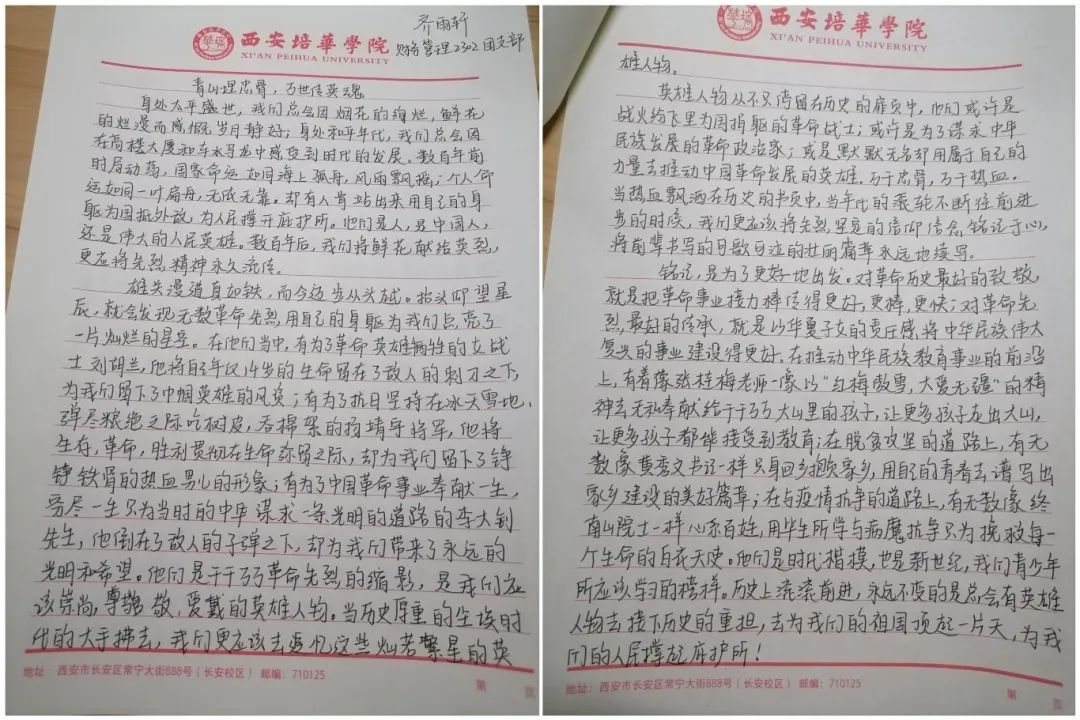 齐雨轩
西安培華學院
XI'AN PEIHUA UNIVERSITY
财务管理2302团支部
青山埋忠骨，万世传英魂
身处太平盛世，我们总会因烟花的绚烂，鲜花
的烂漫而感慨岁月静好；身处和平年代，我们总会因
在高楼大厦和车水马龙中感受到时代的发展。数百年前
时局动荡，国家命运如同海上孤舟，风雨飘摇；个人命
运如同一叶扁舟，无依无靠。却有人肯站出来用自己的身
躯为国抵外敌，为人民撑开庇护所。他们是人，是中国人，
还是伟大的人民英雄。数百年后，我们将鲜花献给英烈，
更应将先烈精神永久流传。
雄关漫道真如铁，而今迈步从头越。抬头仰望星
辰，就会发现无数革命先烈用自己的身躯为我们点亮了
一片灿烂的星空。在他们当中，有为了革命英雄牺牲的女战
士刘胡兰，他将自己年仅15岁的生命留在了敌人的刺刀之下，
为我们留下了巾帼英雄的风范；有为了抗日坚持在冰天雪地，
弹尽粮绝之际吃树皮，吞棉絮的杨靖宇将军，他将
生存，革命，胜利贯彻在生命弥留之际，却为我们留下了铮
铮铁骨的热血男儿的形象；有为了中国革命事业奉献一生，
穷尽一生只为当时的中华谋求一条光明的道路的李大钊
先生，他倒在了敌人的子弹之下，却为我们带来了永远的
光明和希望。他们是千千万万革命先烈的缩影，是我们应
该崇尚，尊敬，爱戴的英雄人物。当历史厚重的尘埃时
代的大手拂去，我们更应该去追忆这些灿若繁星的英
地址：西安市长安区常宁大街888号（长安校区） 邮编：710125
第 页
西安培華學院
XI'AN PEIHUA UNIVERSITY
雄人物。
英雄人物从不只停留在历史的扉页中，他们或许是
战火纷飞里为国捐躯的革命战士；或许是为了谋求中华
民族发展的革命政治家；或是默默无名却用属于自己的
力量去推动中国革命发展的英雄。万千忠骨，万千热血。
当热血飘洒在历史的书页中，当年代的滚轮不断往前进
步的时候，我们更应该将先烈坚定的信仰信念铭记于心，
将前辈书写的可歌可泣的壮丽篇章永远地续写。
铭记，是为了更好地出发。对革命历史最好的致敬，
就是把革命事业接力棒传得更好，更棒，更快；对革命先
烈最好的传承，就是以华夏子女的责任感，将中华民族伟大
复兴的事业建设得更好。在推动中华民族教育事业的前沿
上，有着像张桂梅老师一像以“红梅傲雪，大爱无疆”的精
神去无私奉献给千千万万大山里的孩子，让更多孩子走出大山，
让更多孩子都能接受到教育；在脱贫攻坚的道路上，有无
数像黄秀文书记一样只身回乡照顾家乡，用自己的青春去谱写出
家乡建设的美好篇章；在与疫情抗争的道路上，有无数像终
南山院士一样心系百姓，用毕生所学与病魔抗争只为挽救每一
个生命的白衣天使。他们是时代楷模，也是新世纪，我们青少年
所应该学习的榜样。历史上流流前进，永远不变的是总会有英雄
人物去接下历史的重担，去为我们的祖国顶起一片天，为我
们的人民撑起庇护所！
地址：西安市长安区常宁大街888号（长安校区） 邮编：710125
第 页